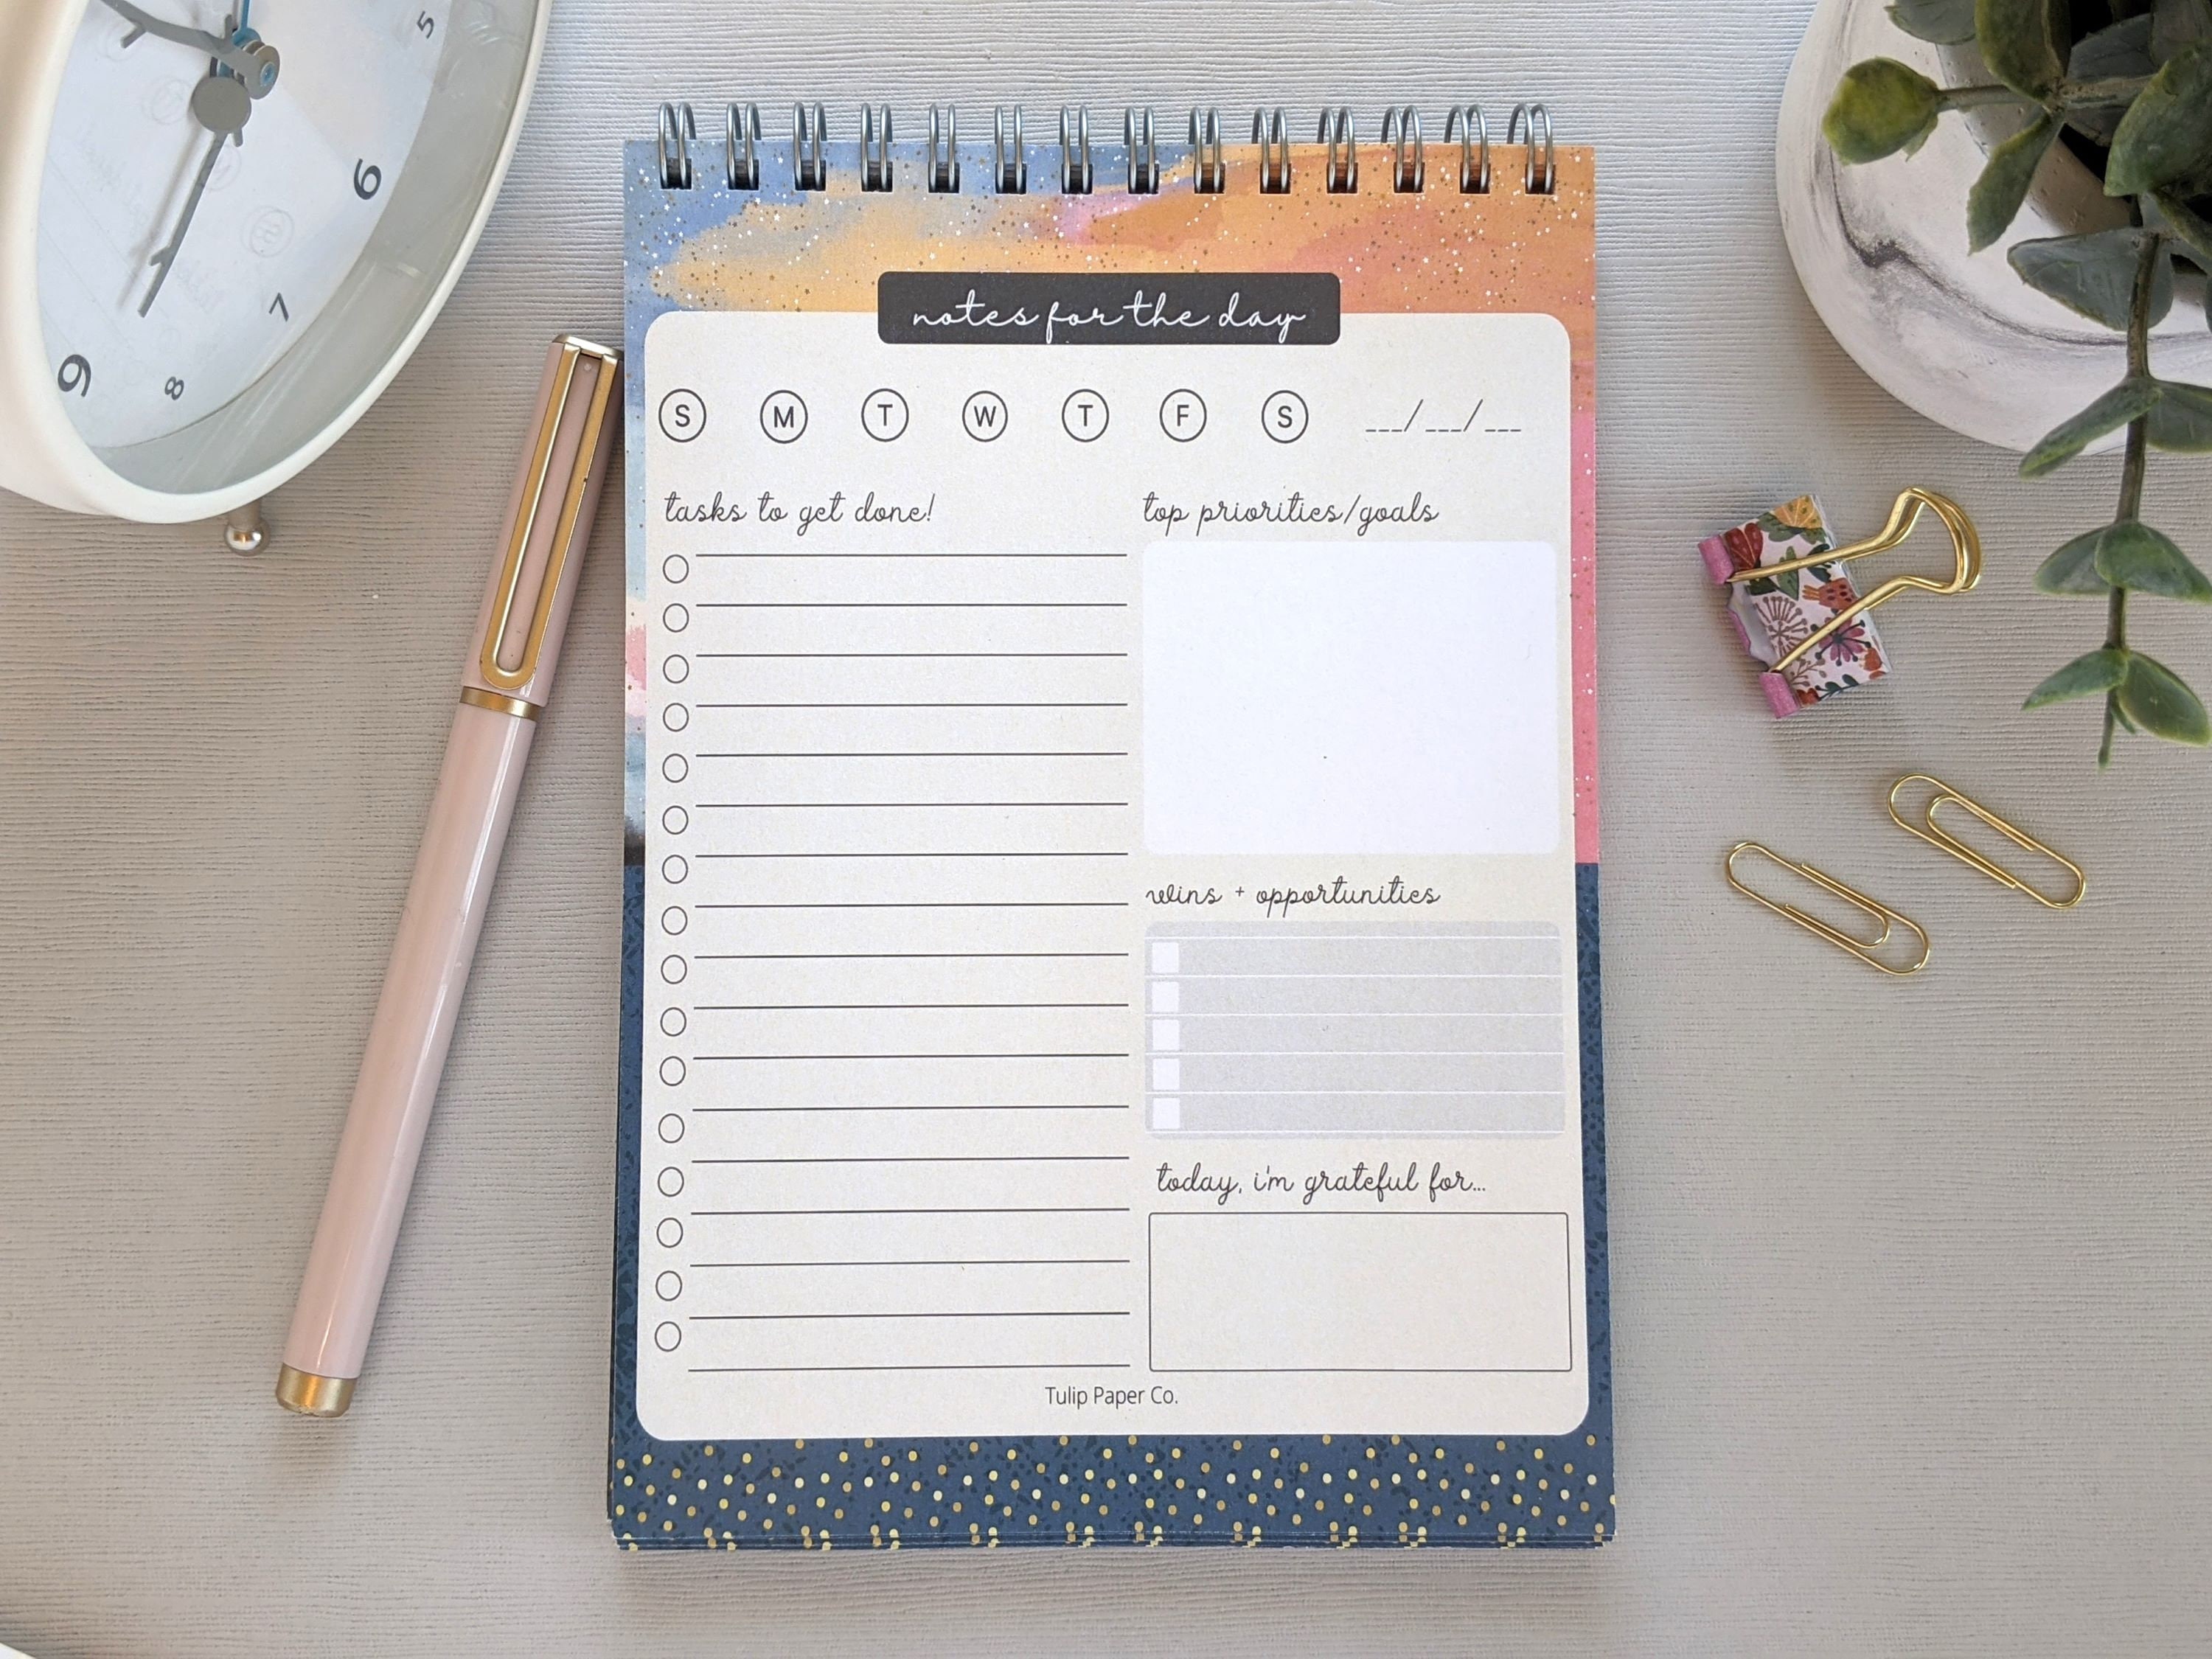 5
6
7
8
9
notes for the day
S M T W T F S __/__/__
tasks to get done!
top priorities/goals
wins + opportunities
today, i'm grateful for...
Tulip Paper Co.